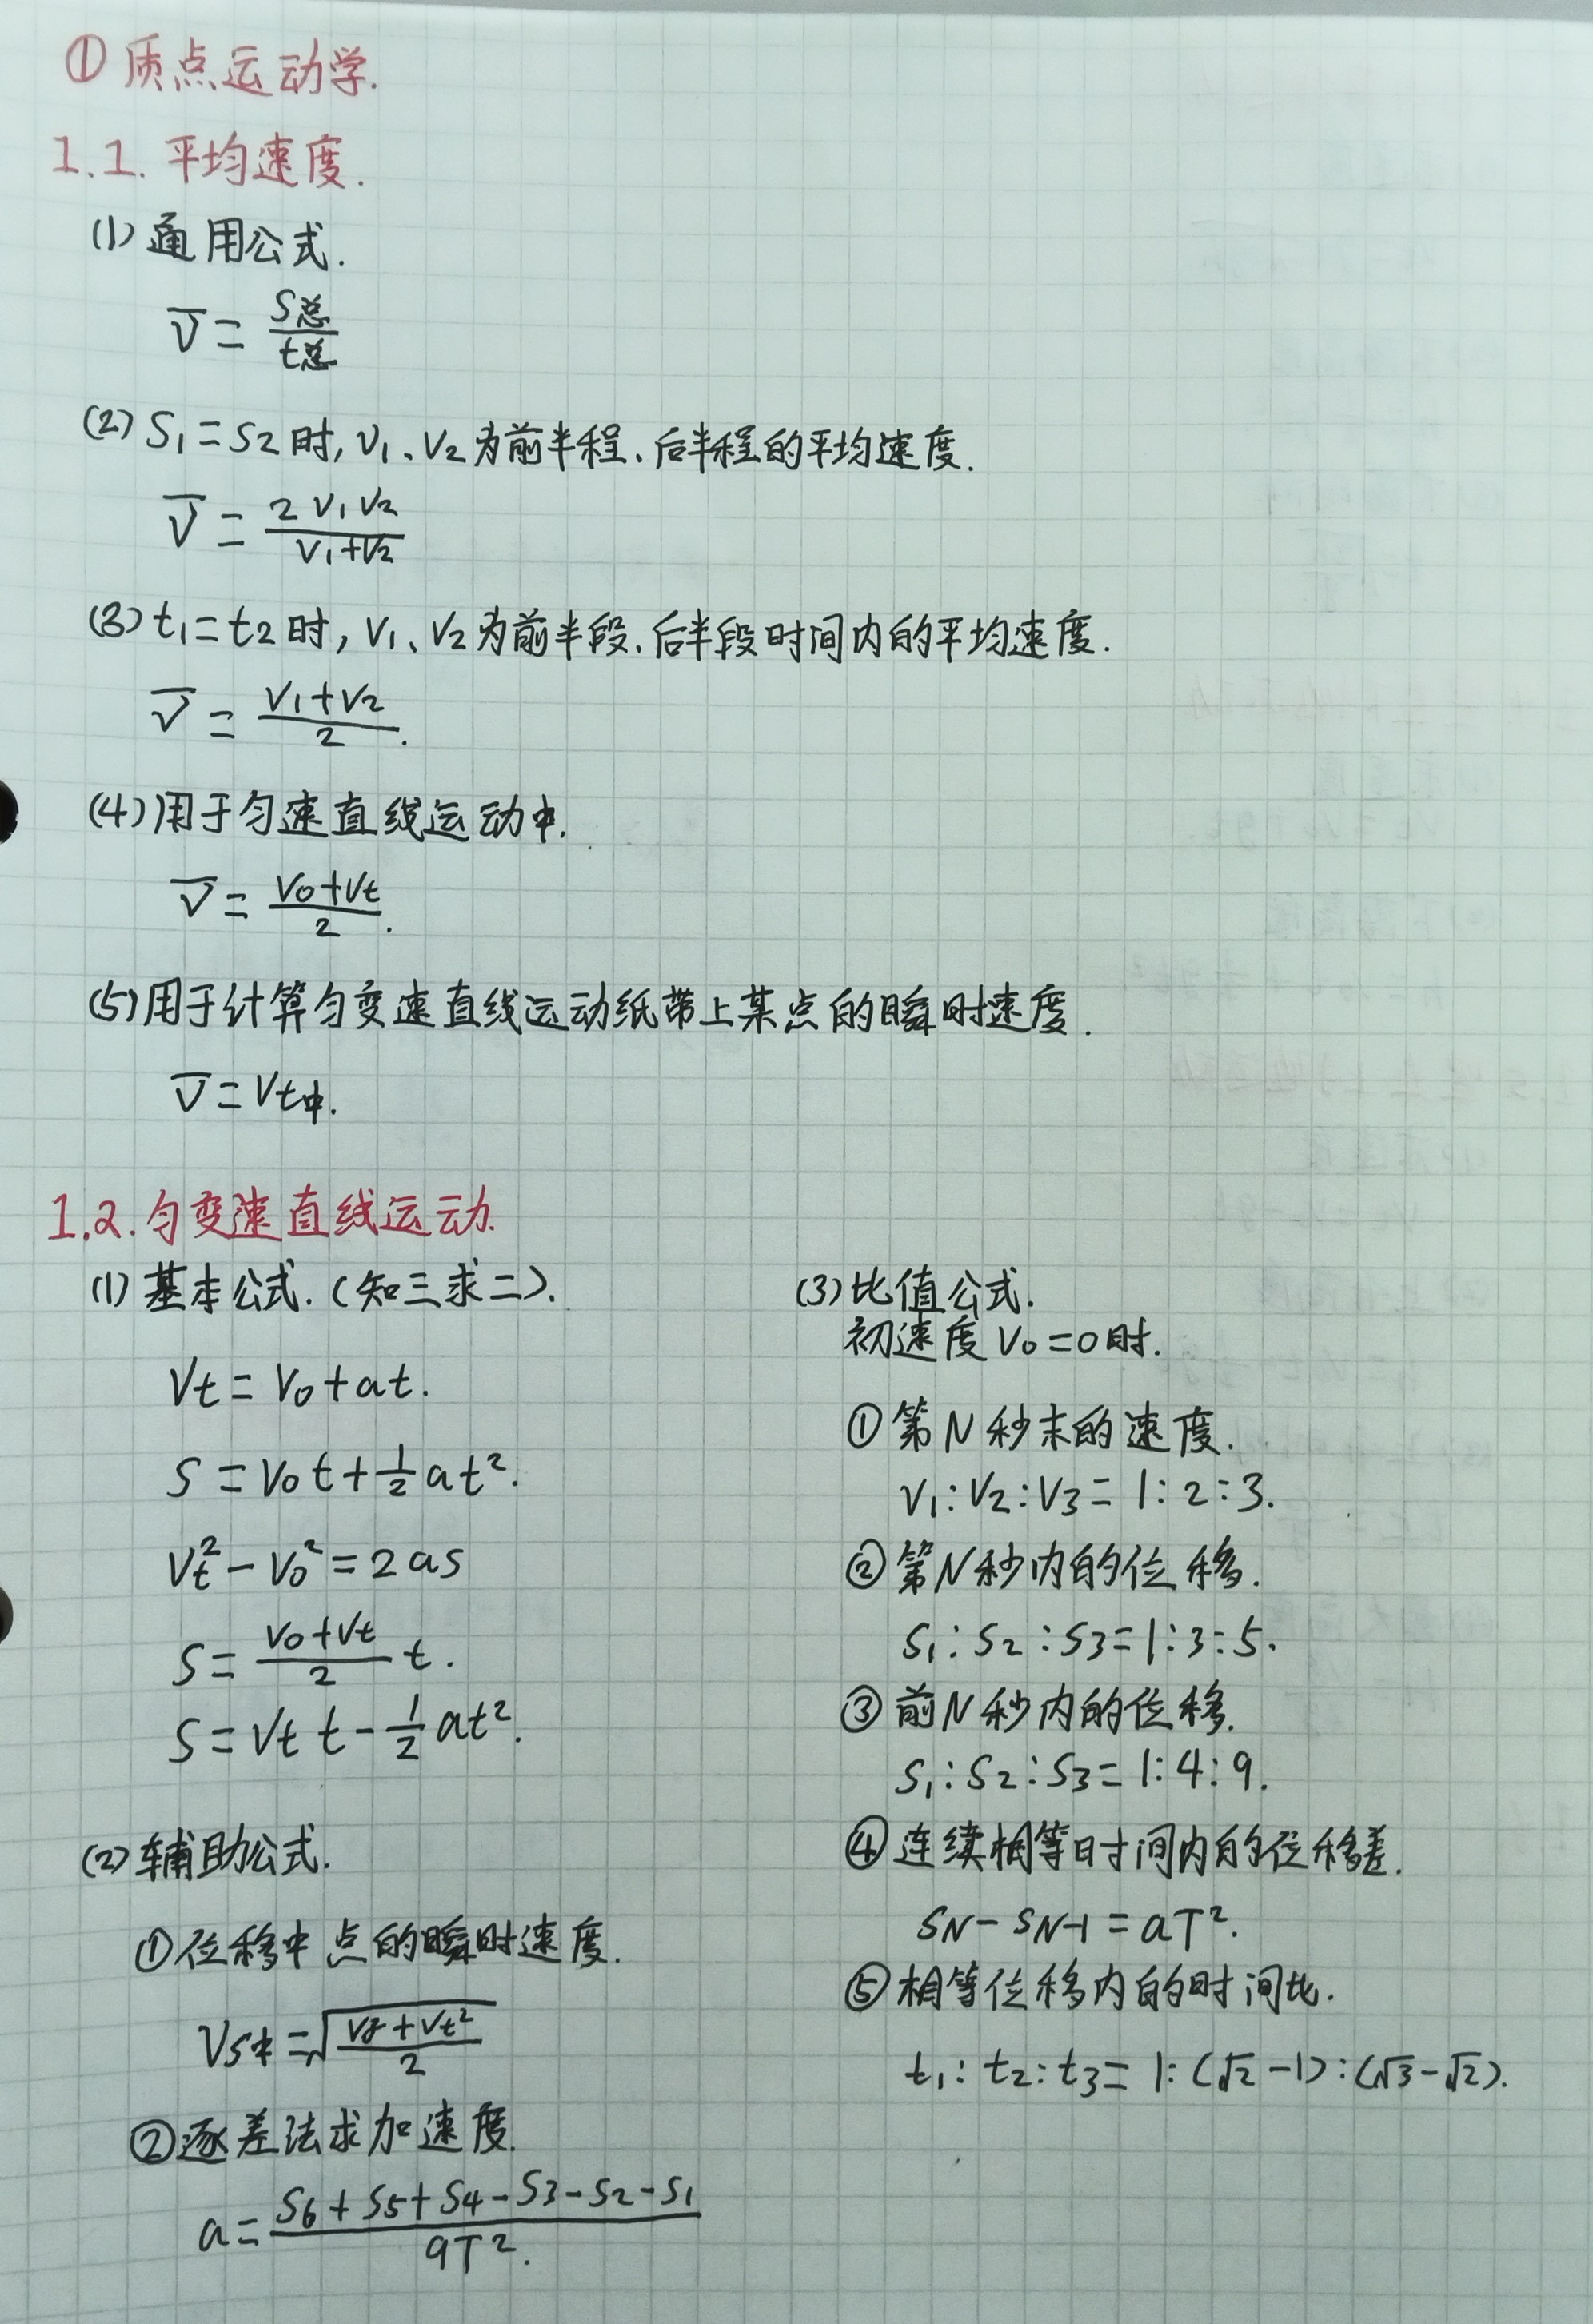 ① 质点运动学.
1.1. 平均速度.
(1) 通用公式.
v̅ = S总/t总
(2) S₁=S₂时, V₁、V₂为前半程、后半程的平均速度.
v̅ = 2V₁V₂/(V₁+V₂)
(3) t₁=t₂时, V₁、V₂为前半段、后半段时间内的平均速度.
v̅ = (V₁+V₂)/2.
(4) 用于匀速直线运动中.
v̅ = (V₀+Vt)/2.
(5) 用于计算匀变速直线运动纸带上某点的瞬时速度.
v̅ = Vt中.
1.2. 匀变速直线运动.
(1) 基本公式. (知三求二).
Vt = V₀+at.
S = V₀t+½at².
Vt²-V₀²=2as
S = (V₀+Vt)/2 t.
S = Vt t-½at².
(2) 辅助公式.
① 位移中点的瞬时速度.
VS中=√((V₀²+Vt²)/2)
② 逐差法求加速度.
a = (S₆+S₅+S₄-S₃-S₂-S₁)/9T².
(3) 比值公式.
初速度V₀=0时.
① 第N秒末的速度.
V₁:V₂:V₃=1:2:3.
② 第N秒内的位移.
S₁:S₂:S₃=1:3:5.
③ 前N秒内的位移.
S₁:S₂:S₃=1:4:9.
④ 连续相等时间内的位移差.
SN-SN-1=aT².
⑤ 相等位移内的时间比.
t₁:t₂:t₃=1:(√2-1):(√3-√2).